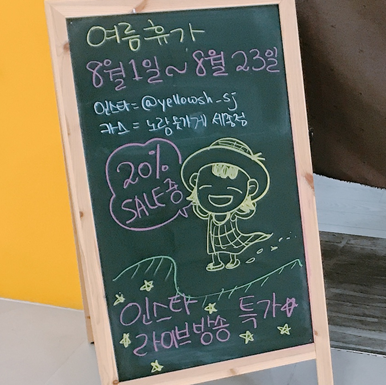 여름휴가
8월1일~8월23일
인스타=@yellowsh_sj
카스 = 노랑웃가게 세종점
20%
SALE중
인스타
라이브방송 특가